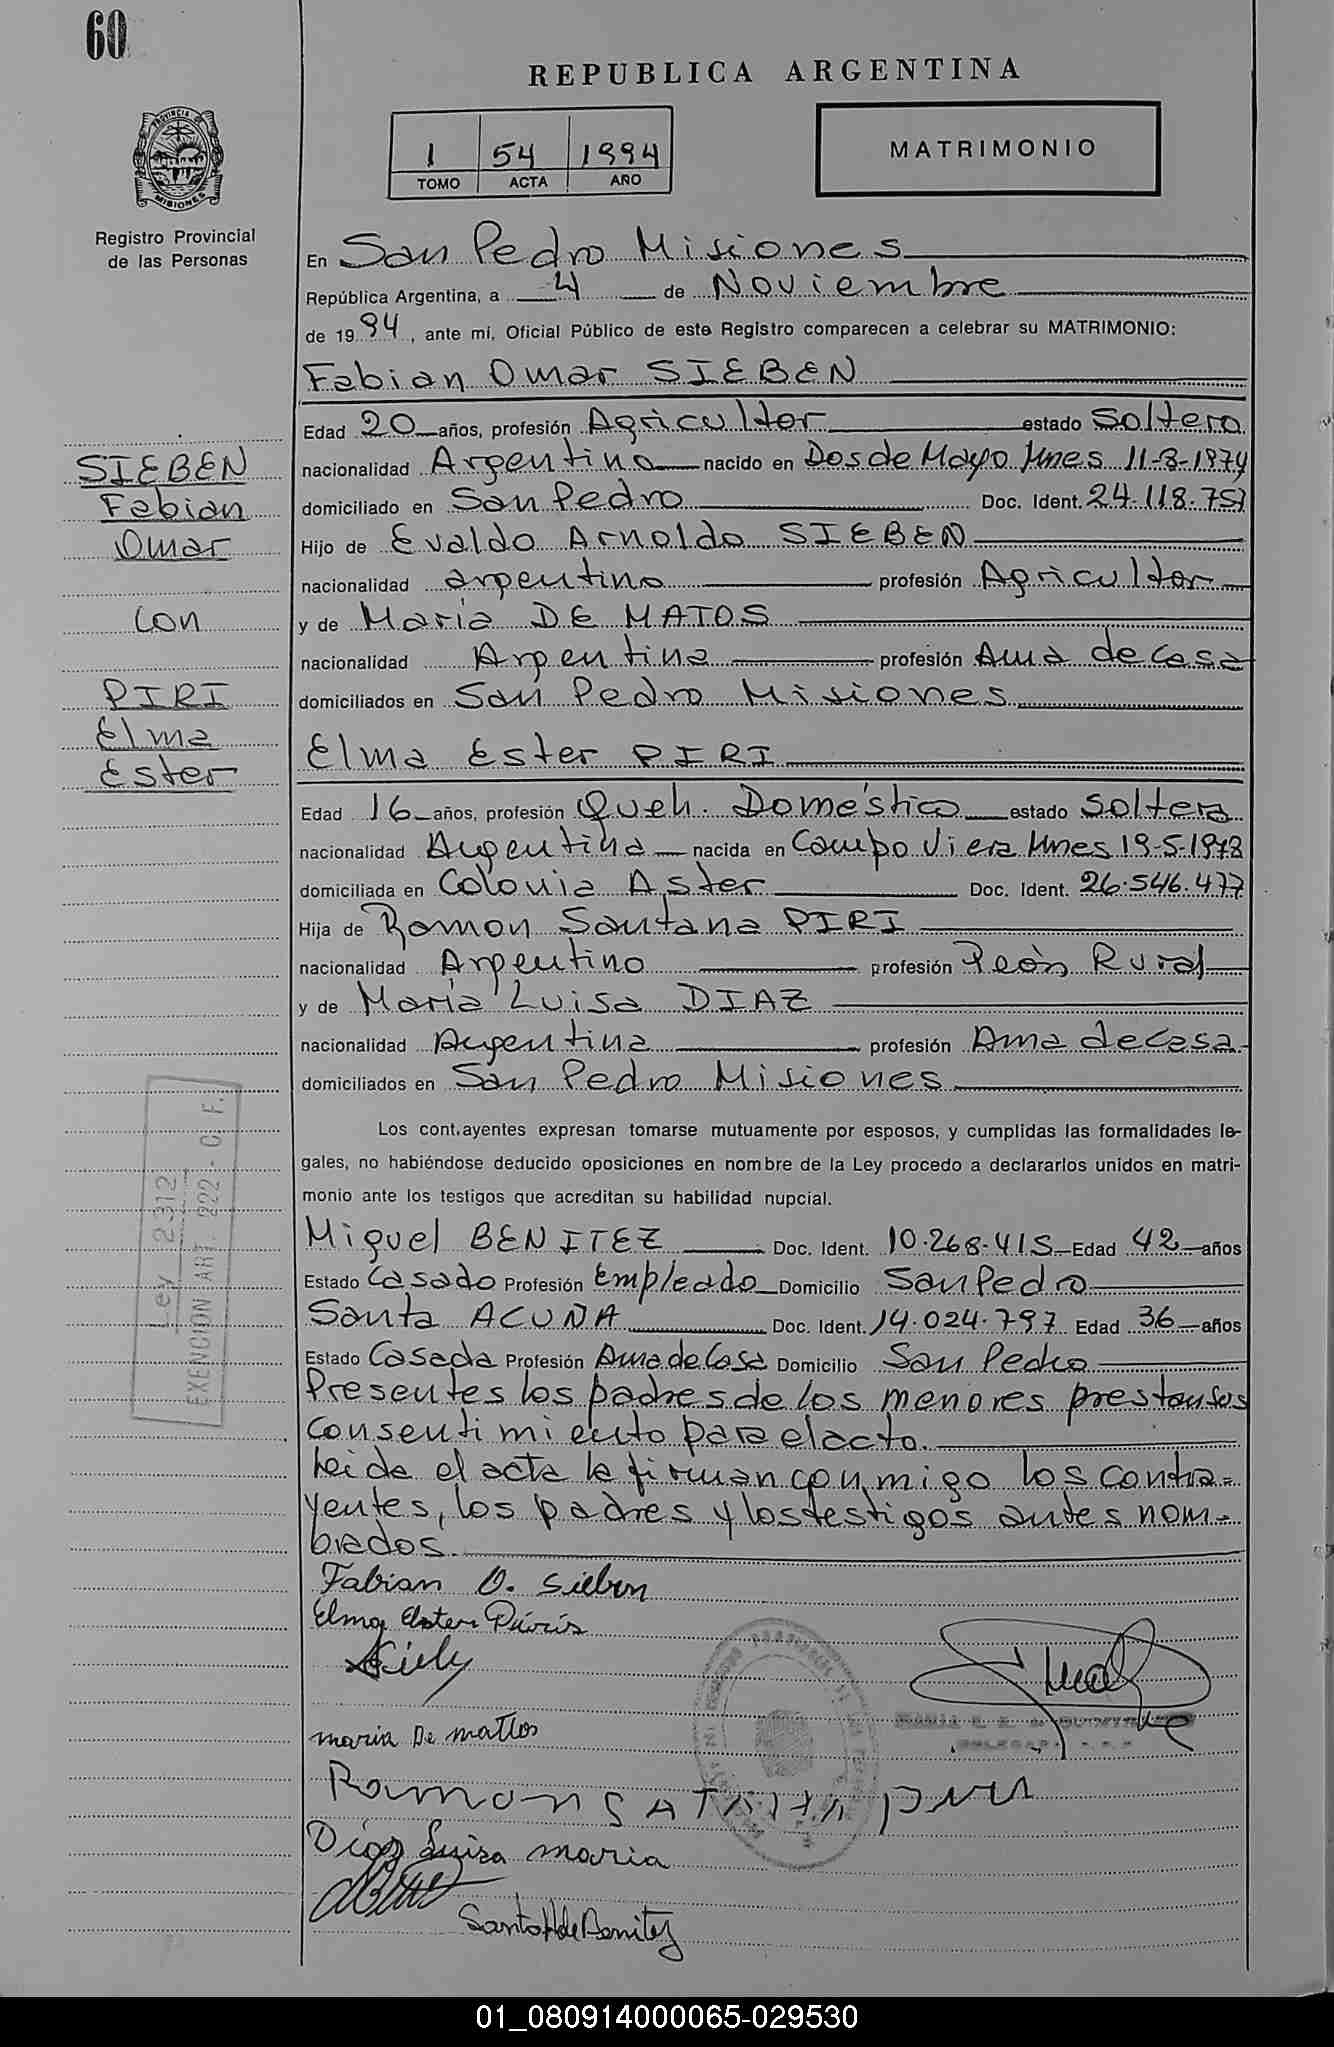 60
REPUBLICA ARGENTINA
PROVINCIA DE
MISIONES
Registro Provincial
de las Personas
1 54 1994
TOMO ACTA AÑO
MATRIMONIO
En San Pedro Misiones
República Argentina, a 4 de Noviembre
de 1994, ante mí, Oficial Público de este Registro comparecen a celebrar su MATRIMONIO:
Fabian Omar SIEBEN
Edad 20 años, profesión Agricultor estado Soltero
nacionalidad Argentino nacido en Dos de Mayo Mnes 11-8-1974
domiciliado en San Pedro Doc. Ident. 24.118.757
Hijo de Evaldo Arnoldo SIEBEN
nacionalidad argentino profesión Agricultor
y de María DE MATOS
nacionalidad Argentina profesión Ama de Casa
domiciliados en San Pedro Misiones
Elma Ester PIRI
Edad 16 años, profesión Queh. Doméstico estado Soltera
nacionalidad Argentina nacida en Campo Viera Mnes 19-5-1978
domiciliada en Colonia Aster Doc. Ident. 26.546.477
Hija de Ramon Santana PIRI
nacionalidad Argentino profesión Peòn Rural
y de María Luisa DIAZ
nacionalidad Argentina profesión Ama de Casa
domiciliados en San Pedro Misiones
SIEBEN
Fabian
Omar
con
PIRI
Elma
Ester
Ley 2312
EXENCION ART. 222 - C. F.
Los contrayentes expresan tomarse mutuamente por esposos, y cumplidas las formalidades le-
gales, no habiéndose deducido oposiciones en nombre de la Ley procedo a declararlos unidos en matri-
monio ante los testigos que acreditan su habilidad nupcial.
Miguel BENITEZ Doc. Ident. 10.268.415 Edad 42 años
Estado Casado Profesión Empleado Domicilio San Pedro
Santa ACUÑA Doc. Ident. 14.024.797 Edad 36 años
Estado Casada Profesión Ama de Casa Domicilio San Pedro
Presentes los padres de los menores prestan sus
consentimiento para el acto.
Leida el acta la firman conmigo los contra-
yentes, los padres y los testigos antes nom-
brados.
Fabian O. Sieben
Elma Ester Piris
maria De mattos
Ramon SATANA piri
Díaz Luisa maria
Santa A de Benitez
01_080914000065-029530